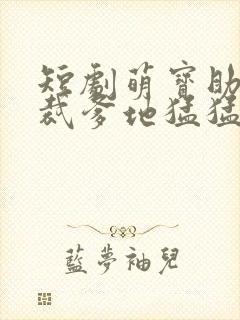 短劇萌寶助
裁爹地猛猛
藍夢袖兒